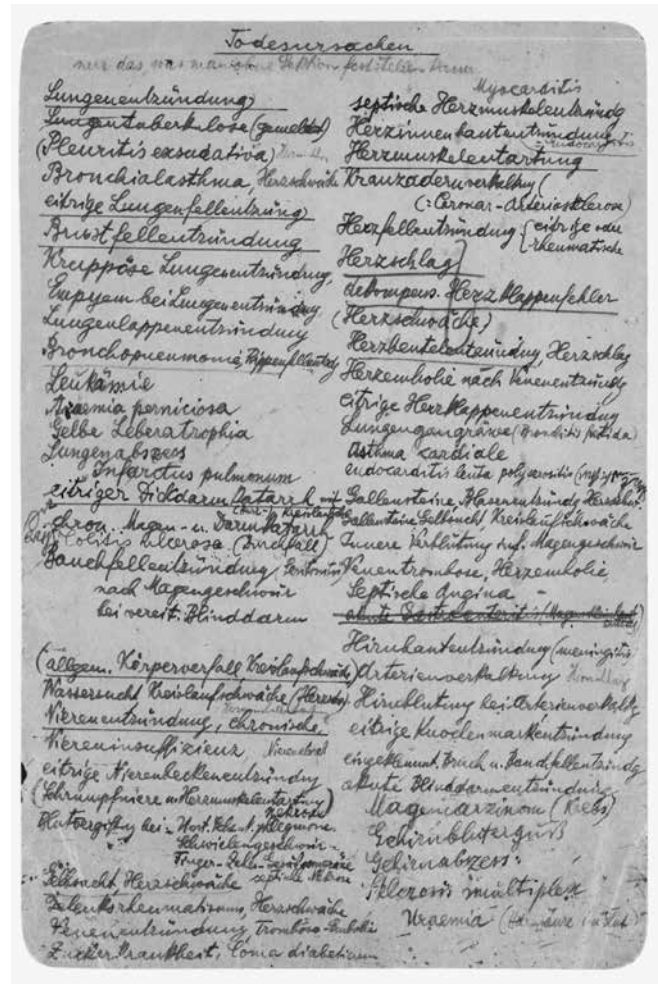 Todesursachen
nur das, was man ohne Sektion feststellen kann
Lungenentzündung
Lungentuberkulose (gemeldet)
(Pleuritis exsudativa)
Bronchialasthma, Herzschwäche
eitrige Lungenfellentzüng
Brustfellentzündung
Kruppöse Lungenentzündung,
Empyem bei Lungenentzündung
Lungenlappenentzündung
Bronchopneumonie, Rippenfellentzdg
Leukämie
Anaemia perniciosa
Gelbe Leberatrophia
Lungenabszess
Infarctus pulmonum
eitriger Dickdarm Catarrh
chron. Magen- u. Darmkatarrh
Colitis ulcerosa (Durchfall)
Bauchfellentzündung, Peritonitis
nach Magengeschwür
bei vereit. Blinddarm
(allgem. Körperverfall Kreislaufschwäche)
Wassersucht Kreislaufschwäche (Herzschw.)
Nierenentzündung, chronische
Niereninsuffizienz,
eitrige Nierenbeckenentzündng
(Schrumpfniere m Herzmuskelentartung)
Blutvergiftg bei Phlegmone
Finger-
septische Nekrose
Gelbsucht Herzschwäche
Gelenksrheumatismus, Herzschwäche
Venenentzündung Trombose-Embolie
Zuckerkrankheit, Coma diabeticum
Myocarditis
septische Herzmuskelentzündg
Herzinnenhautentzündung
endocarditis
Herzmuskelentartung
Kranzadernverkalkung (
(: Coronar-Arteriosklerose)
Herzfellentzündung { eitrige oder
rheumatische
Herzschlag
dekompens. Herzklappenfehler
(Herzschwäche)
Herzbeutelentzündung, Herzschlag
Herzembolie nach Venenentzündg
eitrige Herzklappenentzündung
Lungengangräne (Bronchitis foetida)
Asthma cardiale
endocarditis lenta polyserositis
Gallensteine, Blasenentzündg Herzschw.
Gallensteine Gelbsucht, Kreislaufschwäche
Innere Verblutung inf. Magengeschwür
Venentrombose, Herzembolie,
Septische Angina
akute Gastroenteritis
Hirnhautentzündung (meningitis
Arterienverkalkung Hirnschlag
Hirnblutung bei Arterienverkalkg
eitrige Knochenmarkentzündung
eingeklemmt. Bruch u. Bauchfellentzündg
akute Blinddarmentzündung
Magenkarzinom (Krebs)
Gehirnbluterguß
Gehirnabszess
Sklerosis multiplex
Uraemia